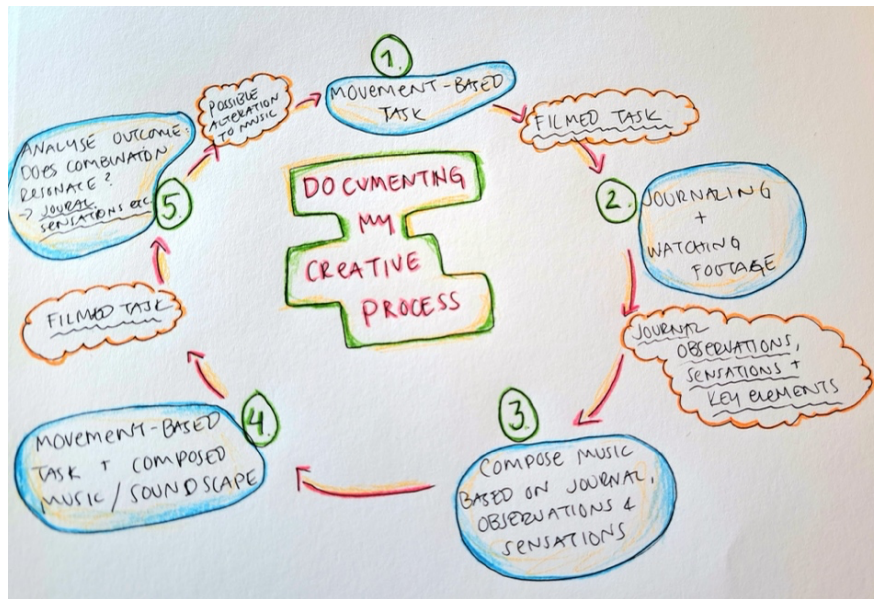 DOCUMENTING
MY
CREATIVE
PROCESS
1.
MOVEMENT-BASED
TASK
FILMED TASK
2.
JOURNALING
+
WATCHING
FOOTAGE
JOURNAL
OBSERVATIONS,
SENSATIONS +
KEY ELEMENTS
3.
COMPOSE MUSIC
BASED ON JOURNAL,
OBSERVATIONS &
SENSATIONS
4.
MOVEMENT-BASED
TASK + COMPOSED
MUSIC / SOUNDSCAPE
FILMED TASK
5.
ANALYSE OUTCOME:
DOES COMBINATION
RESONATE?
→ JOURAL
SENSATIONS etc
POSSIBLE
ALTERATION
TO MUSIC